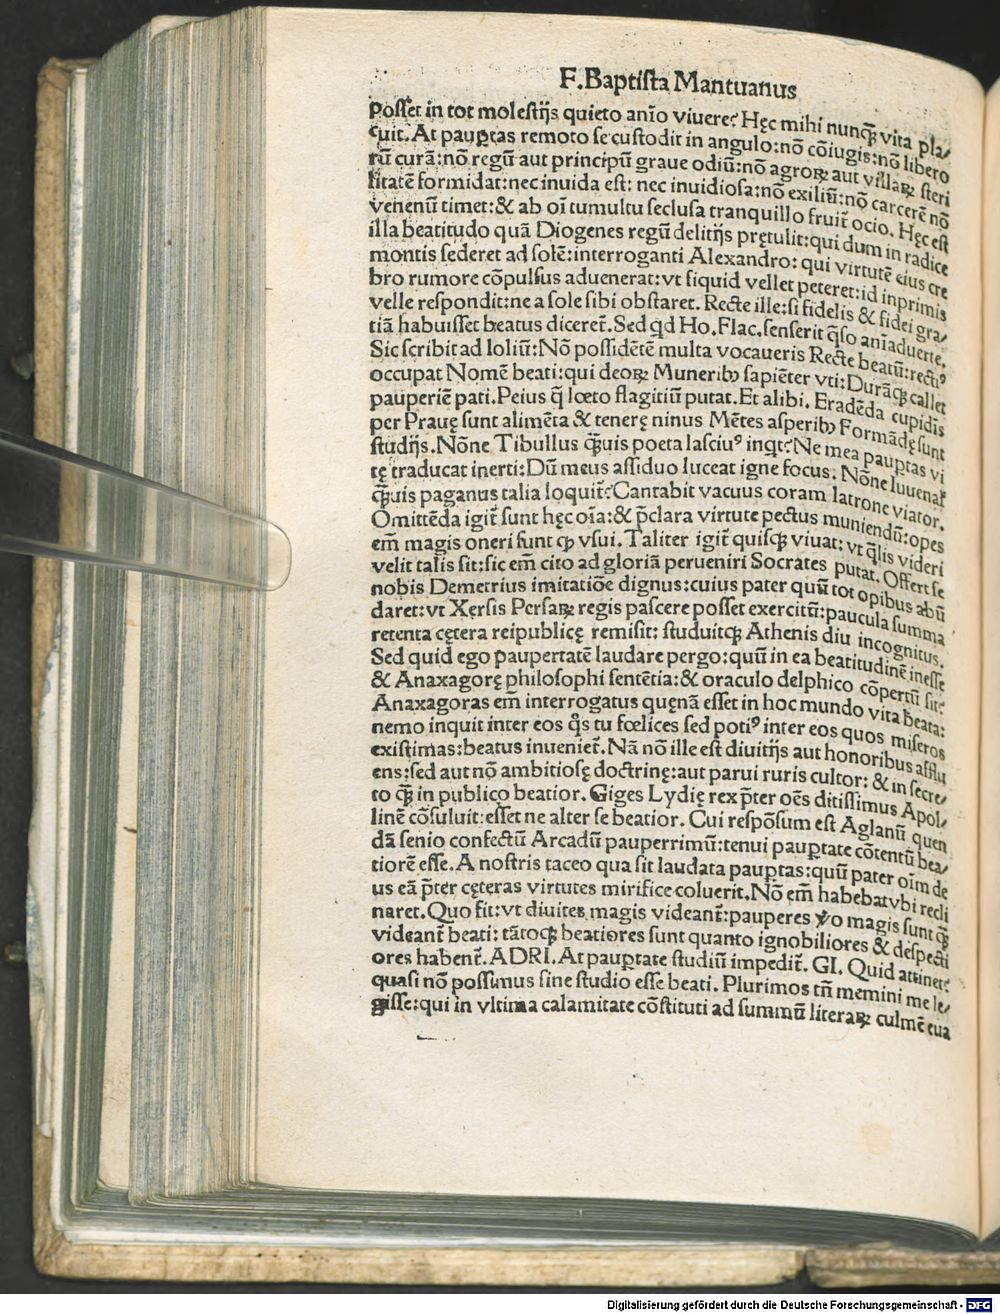 F.Baptiſta Mantuanus
poſſet in tot moleſtijs quieto anīo viuere? Hęc mihi nunꝙ̄ vita pla/
cuit. At paup̲tas remoto ſe cuſtodit in angulo:nō cōiugis:nō libero
rū curā:nō regū aut principū graue odiū:nō agroꝝ aut villaꝝ ſteri
litatē formidat:nec inuida eſt: nec inuidioſa:nō exiliū:nō carcerē nō
venenū timet:& ab oī tumultu ſecluſa tranquillo fruit̄ ocio. Hęc eſt
illa beatitudo quā Diogenes regū delitijs prętulit:qui dum in radice
montis ſederet ad ſolē:interroganti Alexandro: qui virtutē eius cre
bro rumore cōpulſus aduenerat:vt ſiquid vellet peteret:id inprimis
velle reſpondit:ne a ſole ſibi obſtaret. Recte ille:ſi fidelis & fidei gra/
tiā habuiſſet beatus diceret̄. Sed qd Ho. Flac. ſenſerit q̄ſo anīaduerte.
Sic ſcribit ad loliū:Nō poſſidētē multa vocaueris Recte beatū:recti⁹
occupat Nomē beati:qui deoꝝ Munerib⁹ ſapiēter vti:Durāꝙ callet
pauperiē pati. Peius q̄ lœto flagitiū putat. Et alibi. Eradēda cupidis
per Prauę ſunt alimēta & tenerę ninus Mētes aſperib⁹ Formādę ſunt
ſtudijs. Nōne Tibullus ꝙ̄uis poeta laſciu⁹ inqt? Ne mea paup̲tas vi
tę traducat inerti:Dū meus aſſiduo luceat igne focus. Nōne Iuuenał
ꝙ̄uis paganus talia loquit̄?Cantabit vacuus coram latrone viator.
Omittēda igit̄ ſunt hęc oīa:& p̄clara virtute pectus muniendū:opes
em̄ magis oneri ſunt ꝙ vſui. Taliter igit̄ quiſꝙ viuat: vt q̄lis videri
velit talis ſit:ſic em̄ cito ad gloriā perueniri Socrates putat. Offert ſe
nobis Demetrius imitatiōe dignus:cuius pater quū tot opibus abū
daret:vt Xerſis Perſaꝝ regis paſcere poſſet exercitū:paucula ſumma
retenta cętera reipublicę remiſit: ſtuduitꝙ Athenis diu incognitus.
Sed quid ego paupertatē laudare pergo:quū in ea beatitudinē ineſſe
& Anaxagorę philoſophi ſentētia:& oraculo delphico cōpertū ſit?
Anaxagoras em̄ interrogatus quęnā eſſet in hoc mundo vita beata:
nemo inquit inter eos q̄s tu fœlices ſed poti⁹ inter eos quos miſeros
exiſtimas:beatus inueniet̄. Nā nō ille eſt diuitijs aut honoribus afflu
ens:ſed aut nō ambitioſę doctrinę:aut parui ruris cultor: & in ſecre/
to ꝙ̄ in publico beatior. Giges Lydię rex p̄ter oēs ditiſſimus Apol/
linē cōſuluit:eſſet ne alter ſe beatior. Cui reſpōſum eſt Aglanū quen
dā ſenio confectū Arcadū pauperrimū:tenui paup̲tate cōtentū bea/
tiorē eſſe. A noſtris taceo qua ſit laudata paup̲tas:quū pater oīm de
us eā p̄ter cęteras virtutes mirifice coluerit. Nō em̄ habebat vbi recli
naret. Quo fit:vt diuites magis videant̄:pauperes ꝟo magis ſunt ꝙ̄
videant̄ beati: tātoꝙ beatiores ſunt quanto ignobiliores & deſpecti
ores habent̄. ADRI. At paup̲tate ſtudiū impedit̄. GI. Quid attinet?
quaſi nō poſſimus ſine ſtudio eſſe beati. Plurimos tn̄ memini me le/
giſſe:qui in vltima calamitate cōſtituti ad ſummū literaꝝ culmē eua
Digitalisierung gefördert durch die Deutsche Forschungsgemeinschaft - DFG